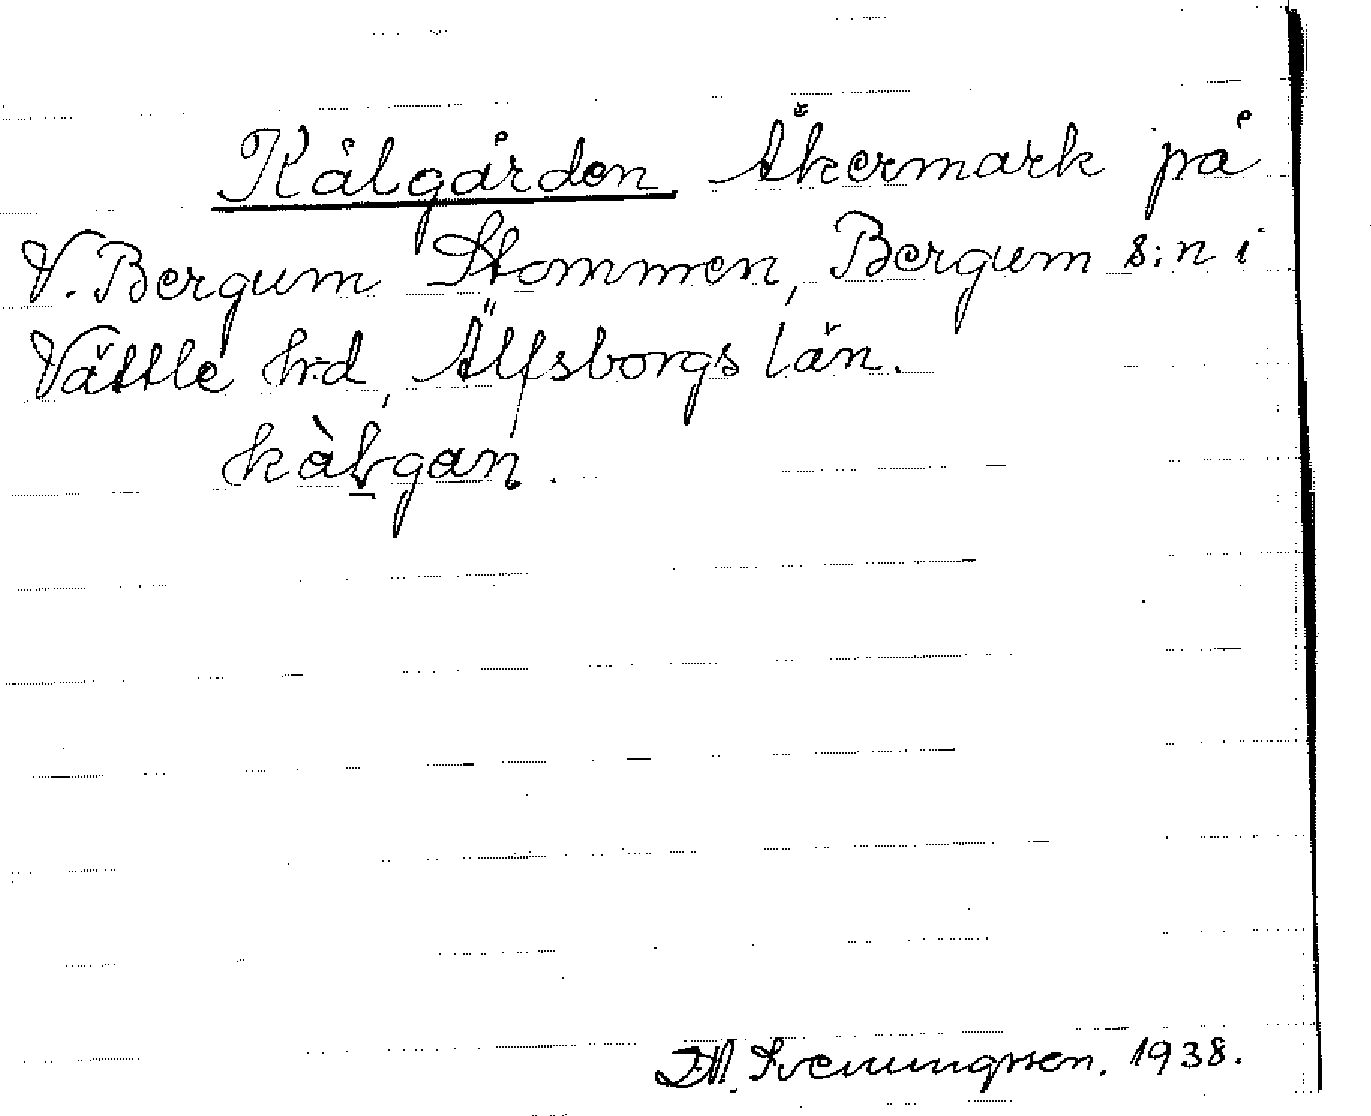 Kålgården. Åkermark på
V. Bergum Stommen, Bergum s:n i
Vättle hrd, Älfsborgs län.
Svenungsson. 1938.